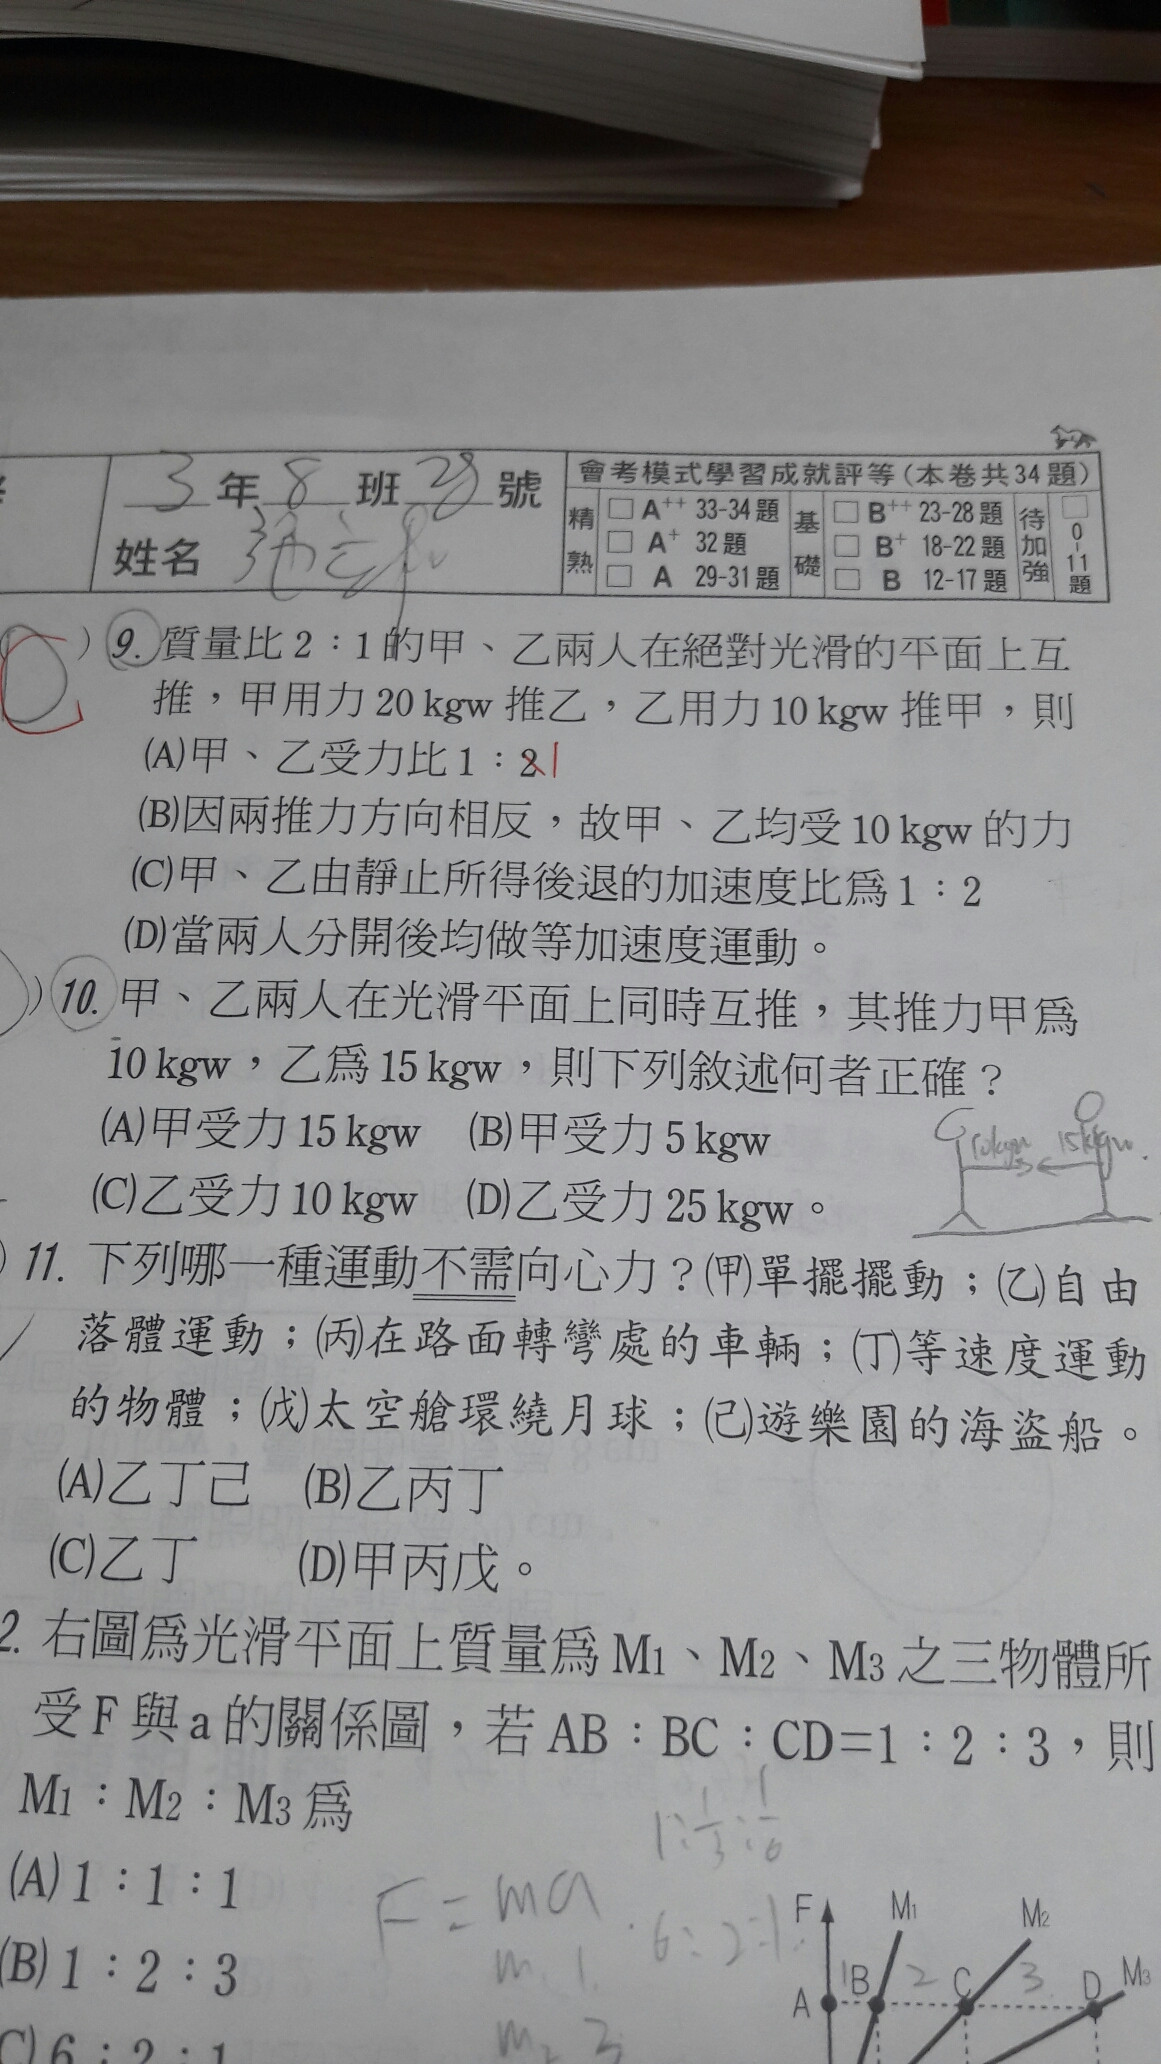 3年8班28號
姓名
會考模式學習成就評等(本卷共34題)
精熟
□ A++ 33-34題
□ A+ 32題
□ A 29-31題
基礎
□ B++ 23-28題
□ B+ 18-22題
□ B 12-17題
待加強
□ 0-11題
) 9. 質量比2:1的甲、乙兩人在絕對光滑的平面上互
推,甲用力20 kgw 推乙,乙用力10 kgw 推甲,則
(A)甲、乙受力比1:2 1
(B)因兩推力方向相反,故甲、乙均受10 kgw 的力
(C)甲、乙由靜止所得後退的加速度比為1:2
(D)當兩人分開後均做等加速度運動。
) 10. 甲、乙兩人在光滑平面上同時互推,其推力甲為
10 kgw,乙為15 kgw,則下列敘述何者正確?
(A)甲受力15 kgw (B)甲受力5 kgw
10kgw 15kgw
(C)乙受力10 kgw (D)乙受力25 kgw。
) 11. 下列哪一種運動不需向心力?(甲)單擺擺動;(乙)自由
落體運動;(丙)在路面轉彎處的車輛;(丁)等速度運動
的物體;(戊)太空艙環繞月球;(己)遊樂園的海盜船。
(A)乙丁己 (B)乙丙丁
(C)乙丁 (D)甲丙戊。
2. 右圖為光滑平面上質量為M1、M2、M3之三物體所
受F與a的關係圖,若AB:BC:CD=1:2:3,則
M1:M2:M3為
1:1/3:1/6
(A)1:1:1
F=ma
6:2:1
(B)1:2:3
m 1
C)6:2:1
m2 3
F M1 M2
A 1 B 2 C 3 D M3